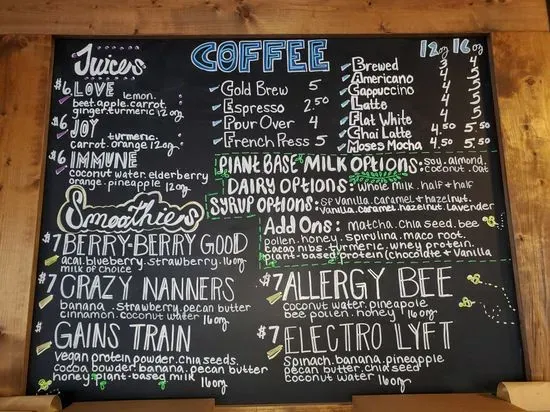 Juices
$6 LOVE lemon.
beet.apple.carrot.
ginger.turmeric 12oz
$6 JOY turmeric.
carrot.orange 12oz
$6 IMMUNE
coconut water.elderberry
orange.pineapple 12oz
COFFEE
Cold Brew 5
Espresso 2.50
Pour Over 4
French Press 5
12oz 16oz
Brewed 3 4
Americano 4 5
Cappuccino 4 5
Latte 4 5
Flat White 4 5
Chai Latte 4.50 5.50
Moses Mocha 4.50 5.50
PLANT BASE MILK OPTIONS: soy.almond.
coconut.oat
DAIRY OPTIONS: whole milk. half & half
SYRUP OPTIONS: SF vanilla.caramel & hazelnut.
vanilla.caramel.hazelnut.lavender
Add Ons: matcha.chia seed.bee
pollen.honey.spirulina.maca root.
cacao nibs.turmeric.whey protein.
plant-based protein (chocolate & vanilla
Smoothies
$7 BERRY-BERRY GOOD
acai.blueberry.strawberry.16oz
milk of choice
$7 CRAZY NANNERS
banana.strawberry.pecan butter
cinnamon.coconut water 16oz
$7 GAINS TRAIN
vegan protein powder.chia seeds.
cocoa powder.banana.pecan butter
honey.plant-based milk 16oz
$7 ALLERGY BEE
coconut water.pineapple
bee pollen.honey 16oz
$7 ELECTRO LYFT
spinach.banana.pineapple
pecan butter.chia seed
coconut water 16oz